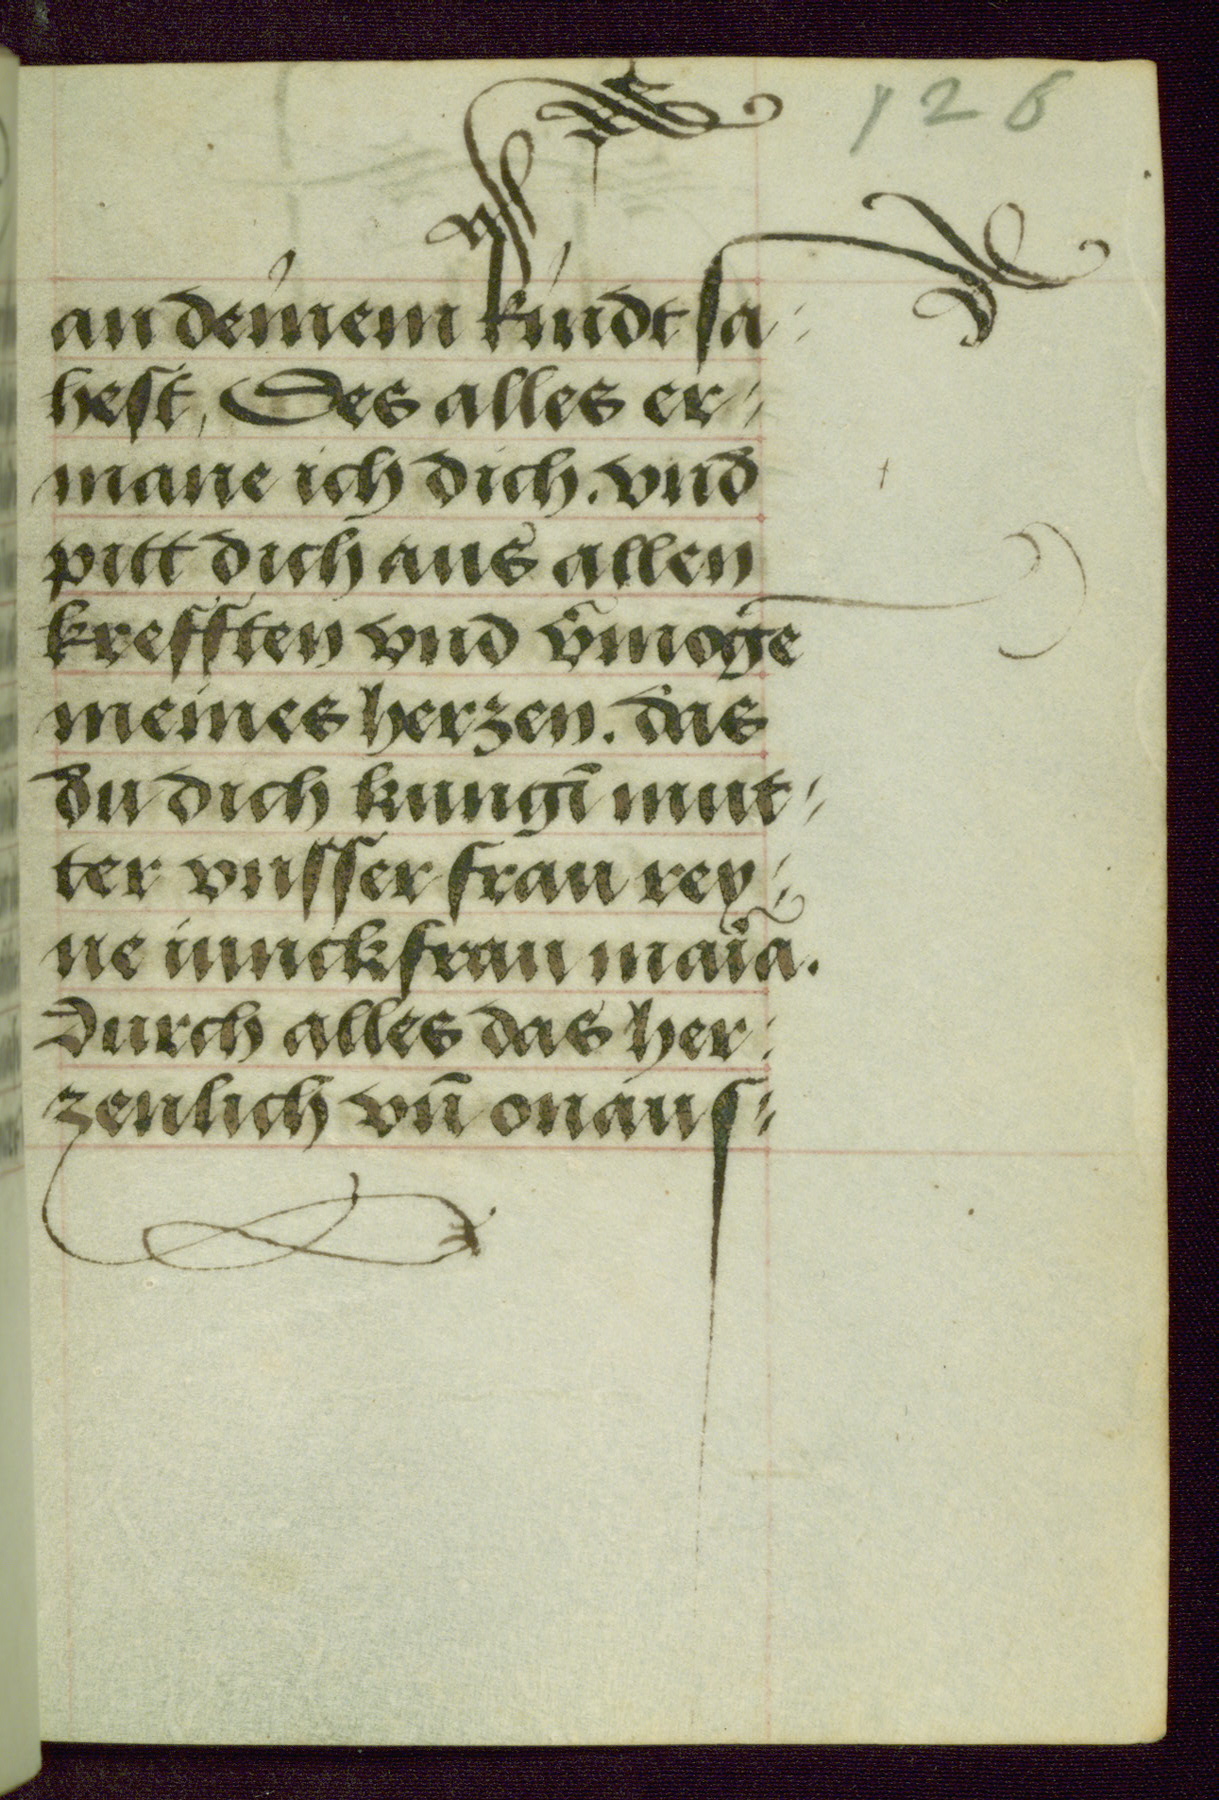 128
an deinem kindt sa⸗
hest, Des alles er⸗
mane ich dich. vnd
pitt dich aus allen
krefften vnd v̄moge
meines herzen. das
du dich kungī mut⸗
ter vnsser frau rey⸗
ne iunckfrau maīa.
Durch alles das her⸗
zenlich vn̄ onaus⸗